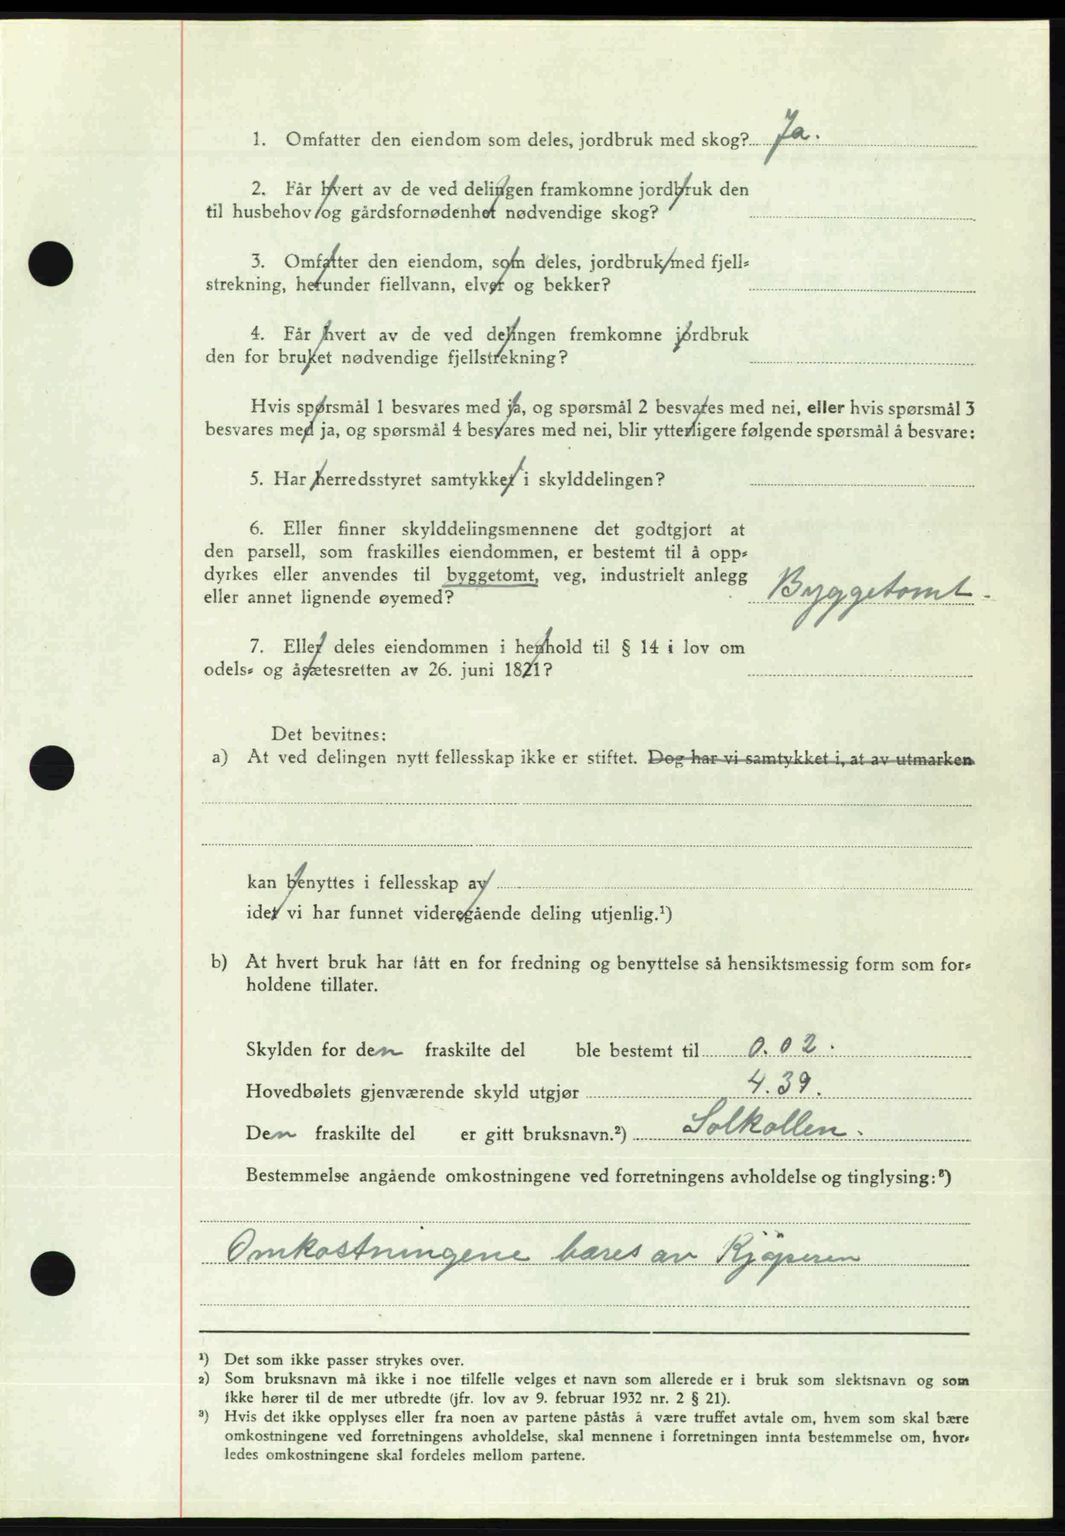 1. Omfatter den eiendom som deles, jordbruk med skog? Ja.
2. Får hvert av de ved delingen framkomne jordbruk den
til husbehov og gårdsfornødenhet nødvendige skog?
3. Omfatter den eiendom, som deles, jordbruk med fjell-
strekning, herunder fiellvann, elver og bekker?
4. Får hvert av de ved delingen fremkomne jordbruk
den for bruket nødvendige fjellstrekning?
Hvis spørsmål 1 besvares med ja, og spørsmål 2 besvares med nei, eller hvis spørsmål 3
besvares med ja, og spørsmål 4 besvares med nei, blir ytterligere følgende spørsmål å besvare:
5. Har herredsstyret samtykket i skylddelingen?
6. Eller finner skylddelingsmennene det godtgjort at
den parsell, som fraskilles eiendommen, er bestemt til å opp-
dyrkes eller anvendes til byggetomt, veg, industrielt anlegg
eller annet lignende øyemed? Byggetomt.
7. Eller deles eiendommen i henhold til § 14 i lov om
odels- og åsætesretten av 26. juni 1821?
Det bevitnes:
a) At ved delingen nytt fellesskap ikke er stiftet. Dog har vi samtykket i, at av utmarken
kan benyttes i fellesskap av
idet vi har funnet videregående deling utjenlig.¹)
b) At hvert bruk har fått en for fredning og benyttelse så hensiktsmessig form som for-
holdene tillater.
Skylden for den fraskilte del ble bestemt til 0.02.
Hovedbølets gjenværende skyld utgjør 4.39.
Den fraskilte del er gitt bruksnavn.²) Solkollen.
Bestemmelse angående omkostningene ved forretningens avholdelse og tinglysing:³)
Omkostningene bæres av Kjöperen
¹) Det som ikke passer strykes over.
²) Som bruksnavn må ikke i noe tilfelle velges et navn som allerede er i bruk som slektsnavn og som
ikke hører til de mer utbredte (jfr. lov av 9. februar 1932 nr. 2 § 21).
³) Hvis det ikke opplyses eller fra noen av partene påstås å være truffet avtale om, hvem som skal bære
omkostningene ved forretningens avholdelse, skal mennene i forretningen innta bestemmelse om, hvor-
ledes omkostningene skal fordeles mellom partene.